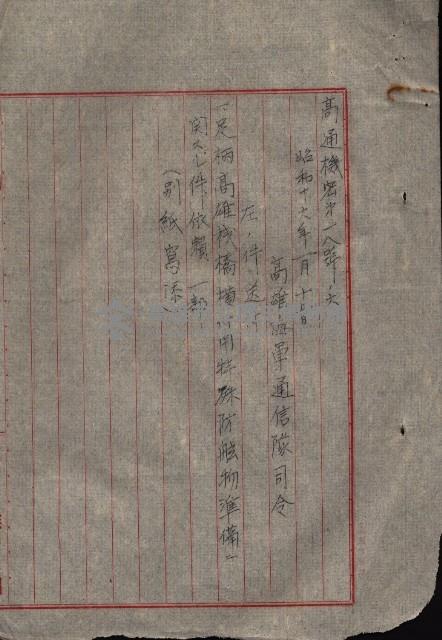 高通機密第二八號ノ六
昭和十六年一月十七日
高雄海軍通信隊司令
左ノ件送付
一、足柄高雄桟橋横付用特殊防舷物準備ニ
関スル件依頼 一部
(別紙寫添)